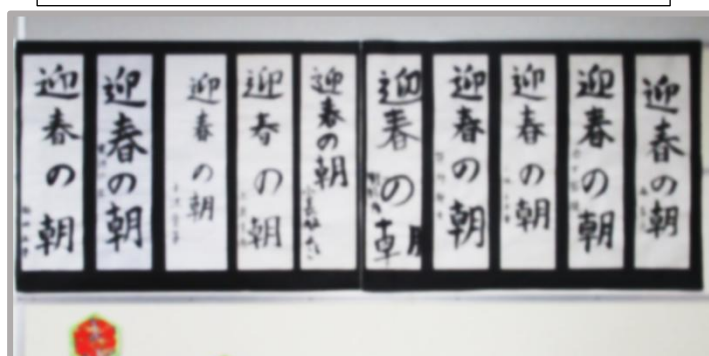 迎春の朝
迎春の朝
迎春の朝
迎春の朝
迎春の朝
迎春の朝
迎春の朝
迎春の朝
迎春の朝
迎春の朝